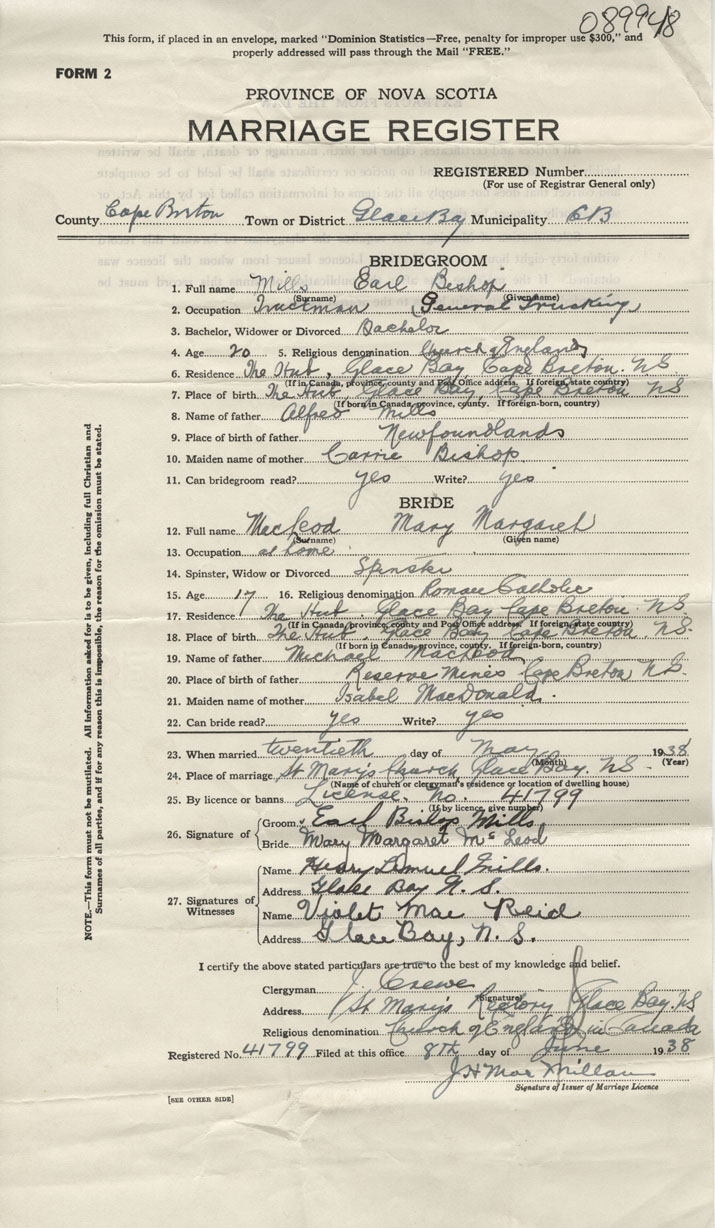 089948
This form, if placed in an envelope, marked "Dominion Statistics—Free, penalty for improper use $300," and
properly addressed will pass through the Mail "FREE."
FORM 2
PROVINCE OF NOVA SCOTIA
MARRIAGE REGISTER
REGISTERED Number
(For use of Registrar General only)
County Cape Breton Town or District Glace Bay Municipality CB
BRIDEGROOM
1. Full name Mills Earl Bishop
(Surname) (Given name)
2. Occupation Truckman (General Trucking)
3. Bachelor, Widower or Divorced Bachelor
4. Age 20 5. Religious denomination Church of England
6. Residence The Hub, Glace Bay, Cape Breton. NS
(If in Canada, province, county and Post Office address. If foreign, state country)
7. Place of birth The Hub, Glace Bay, Cape Breton NS
(If born in Canada, province, county. If foreign-born, country)
8. Name of father Alfred Mills
9. Place of birth of father Newfoundland
10. Maiden name of mother Carrie Bishop
11. Can bridegroom read? yes Write? yes
BRIDE
12. Full name MacLeod Mary Margaret
(Surname) (Given name)
13. Occupation at home
14. Spinster, Widow or Divorced Spinster
15. Age 17 16. Religious denomination Roman Catholic
17. Residence The Hub. Glace Bay Cape Breton. NS
(If in Canada, province, county and Post Office address. If foreign, state country)
18. Place of birth The Hub, Glace Bay Cape Breton NS.
(If born in Canada, province, county. If foreign-born, country)
19. Name of father Michael MacLeod
20. Place of birth of father Reserve Mines Cape Breton NS.
21. Maiden name of mother Isabel MacDonald.
22. Can bride read? yes Write? yes
23. When married twentieth day of May 1938
(Month) (Year)
24. Place of marriage St Mary's Church, Glace Bay. NS
(Name of church or clergyman's residence or location of dwelling house)
25. By licence or banns License. No. 41799
(If by licence, give number)
26. Signature of
Groom Earl Bishop Mills
Bride Mary Margaret McLeod
27. Signatures of Witnesses
Name Lemuel Mills.
Address Glace Bay N. S.
Name Violet Mae Reid
Address Glace Bay, N. S.
I certify the above stated particulars are true to the best of my knowledge and belief.
Clergyman J. Crewe
(Signature)
Address St Mary's Rectory Glace Bay. NS
Religious denomination Church of England in Canada
Registered No. 41799 Filed at this office 8th day of June 1938
J H MacMillan
Signature of Issuer of Marriage Licence
[SEE OTHER SIDE]
NOTE.—This form must not be mutilated. All information asked for is to be given, including full Christian and
Surnames of all parties, and if for any reason this is impossible, the reason for the omission must be stated.